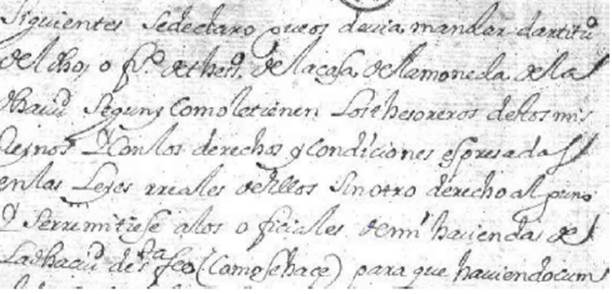 Siguientes Sedeclaro pues devia mandar dartitu
del dho o fº. de thesº. de lacasa de lamoneda de la
dhaciuᵈ Segun y Comoletienen Los thesoreros destos mis
Reynos Y Con los derechos y Condiciones espresadas
en las Leyes rreales de ellos Sin otro derecho al guno
Y Serremitiese alos o ficiales de mi hacienda de
La dhaciuᵈ de sᵗᵃ fee (Como Sehace) para que haviendo cum